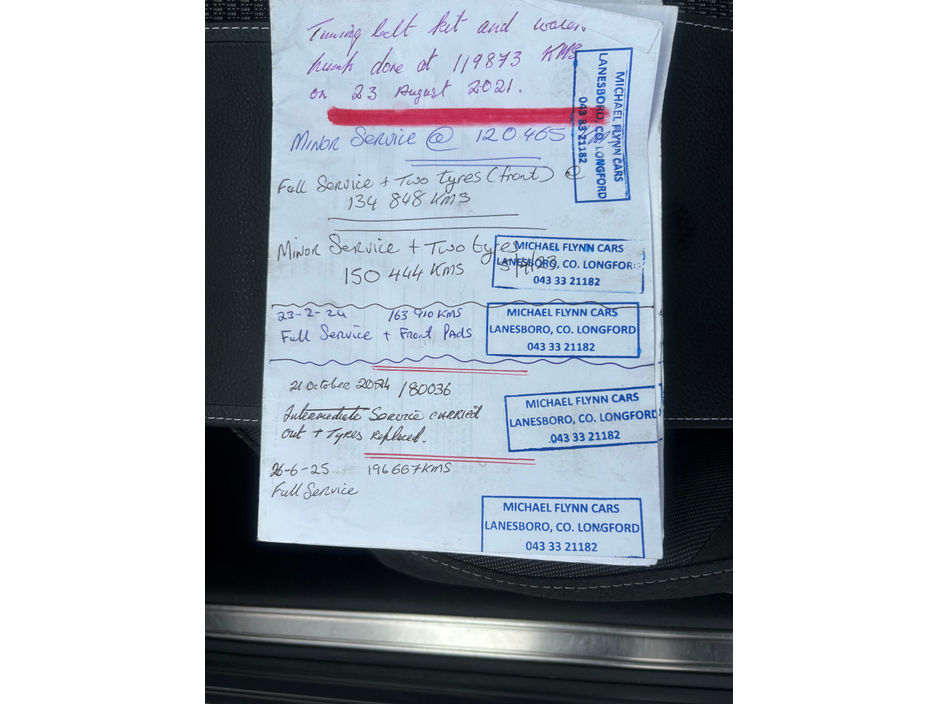 Timing belt kit and water
pump done at 119873 KMS
on 23 August 2021.
MICHAEL FLYNN CARS
LANESBORO, CO. LONGFORD
043 33 21182
Minor Service @ 120465
Full Service + Two tyres (front) @
134 848 KMS
Minor Service + Two tyres
150 444 KMS
MICHAEL FLYNN CARS
LANESBORO, CO. LONGFOR
043 33 21182
23-2-24 163 910 KMS
Full Service + Front Pads
MICHAEL FLYNN CARS
LANESBORO, CO. LONGFORD
043 33 21182
21 October 2024 180036
Intermediate Service carried
out + Tyres replaced.
MICHAEL FLYNN CARS
LANESBORO, CO. LONGFORD
043 33 21182
26-6-25 196667 KMS
Full Service
MICHAEL FLYNN CARS
LANESBORO, CO. LONGFORD
043 33 21182